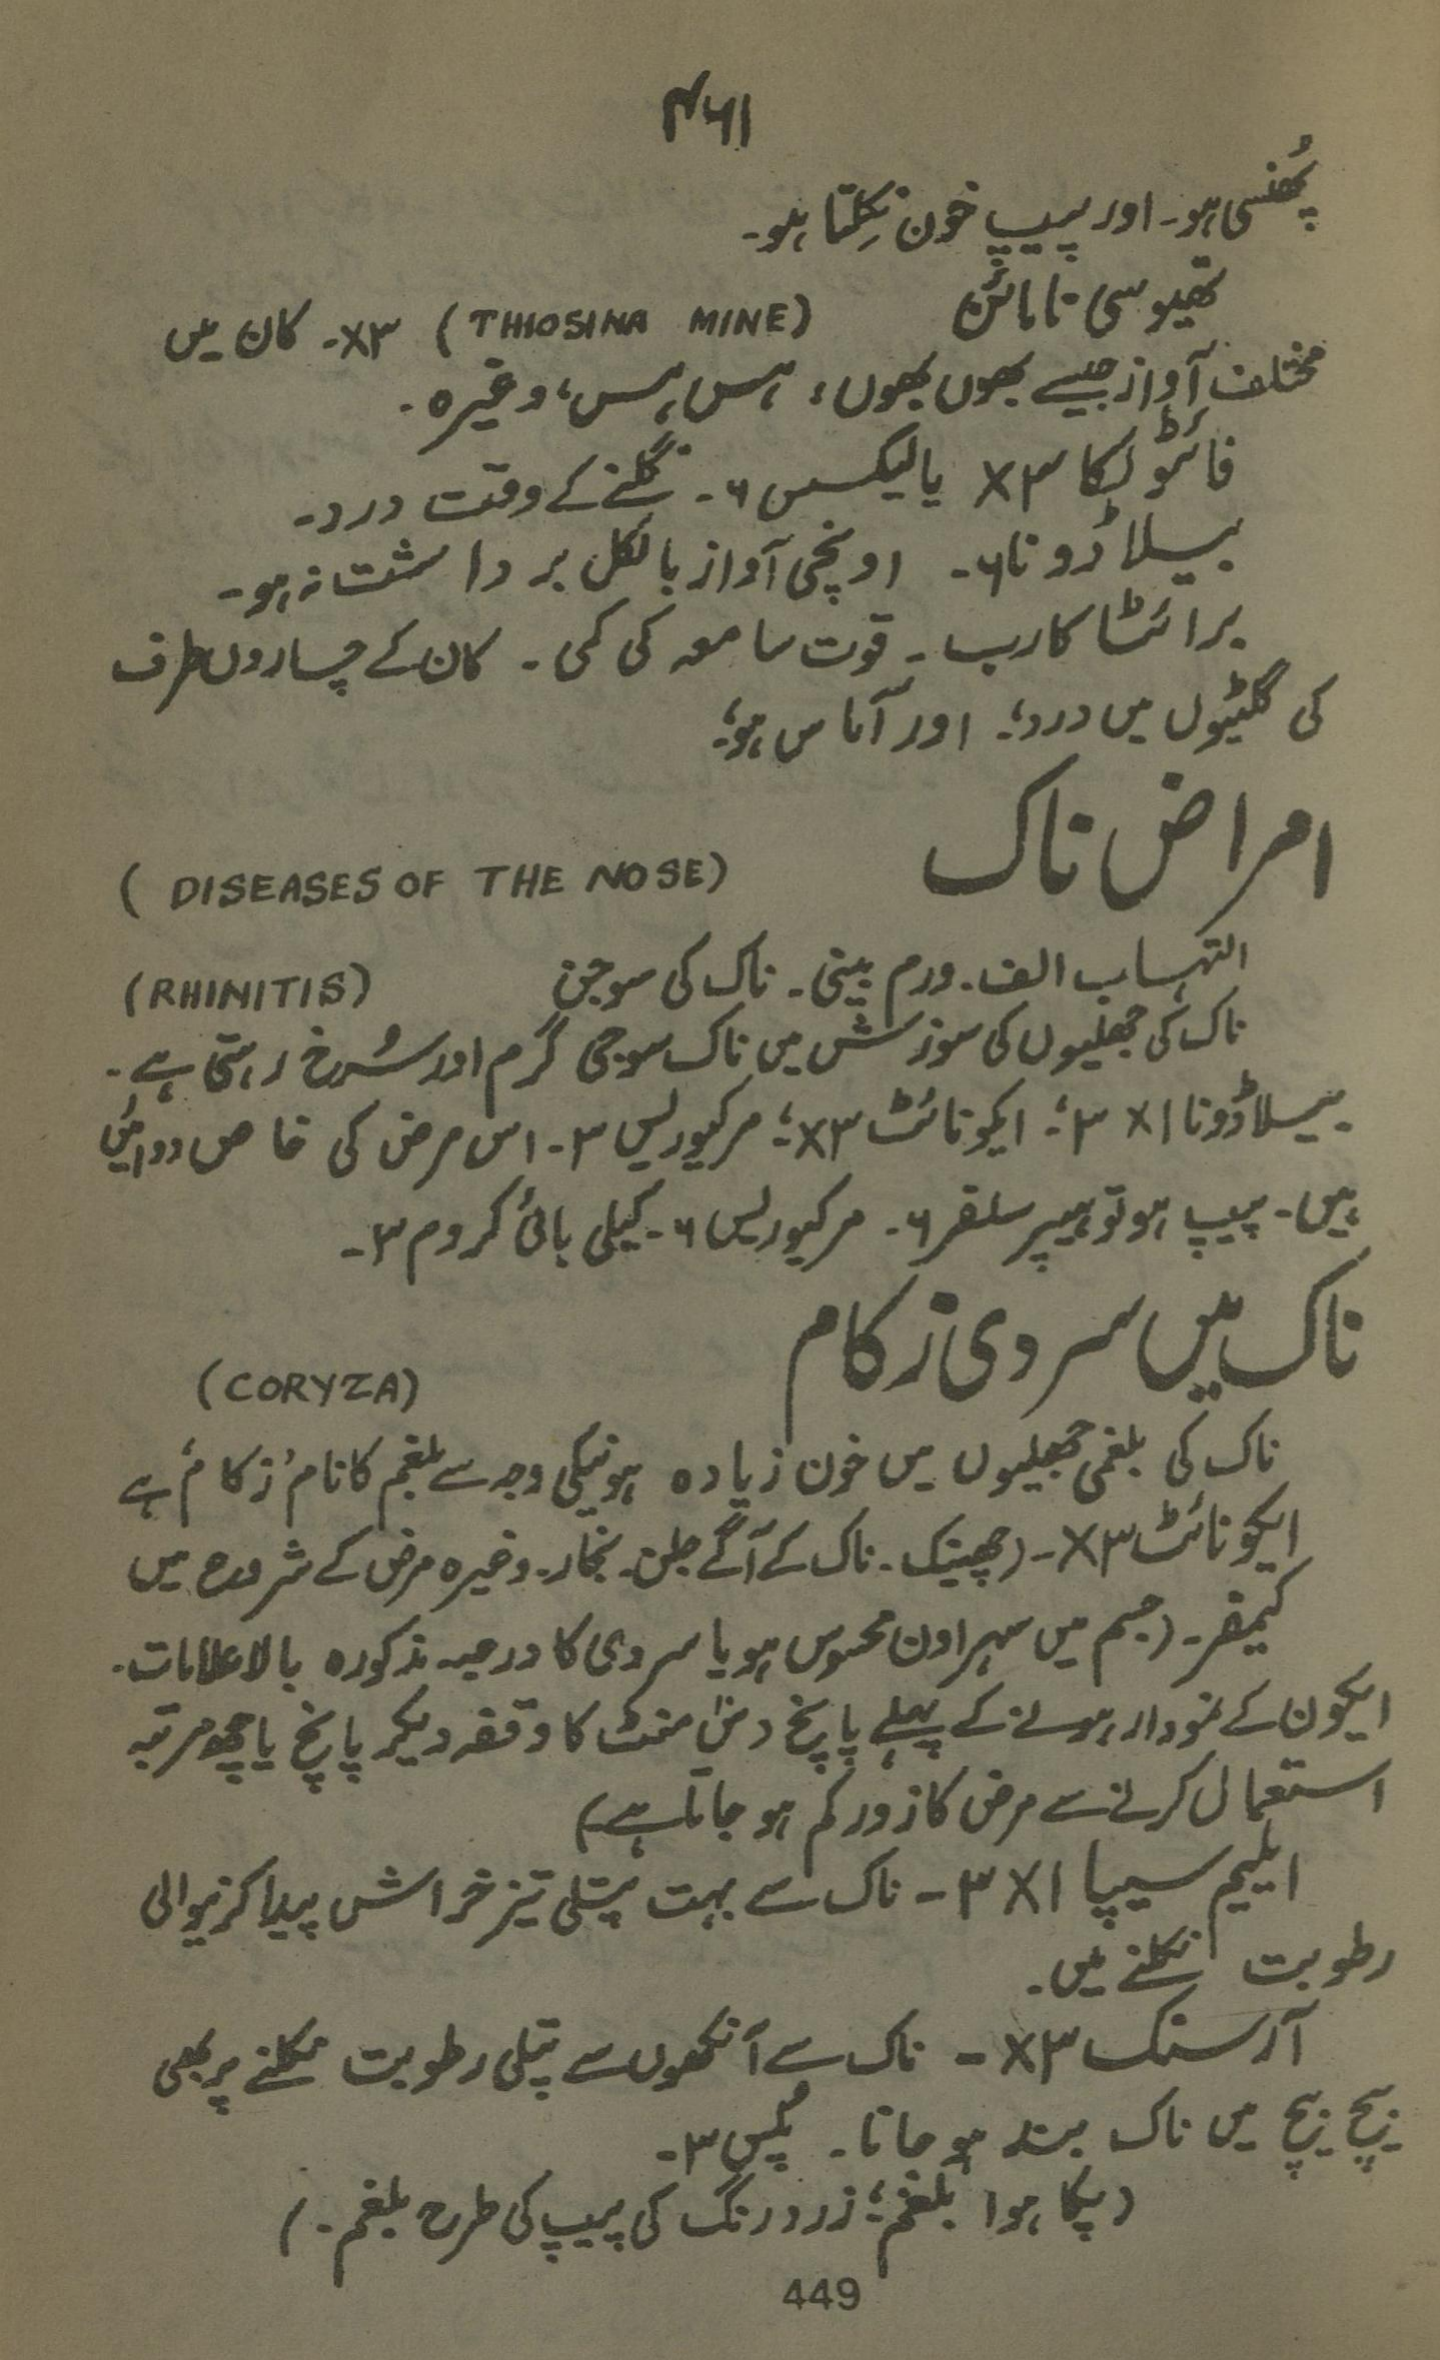 ۴۶۱
پُھنسی ہو۔ اور پیپ خون نِکلتا ہو۔
تھیوسی نامائن (THIOSINA MINE) ۳x۔ کان میں
مختلف آواز جیسے بھوں بھوں، ہس ہس، وغیرہ۔
فائٹولکا ۳x یا لیکسس ۶۔ نگلنے کے وقت درد۔
بیلاڈونا ۶۔ اونچی آواز بالکل برداشت نہ ہو۔
برائٹا کارب۔ قوت سامعہ کی کمی۔ کان کے چاروں طرف
کی گلٹیوں میں درد؛ اور آماس ہو؛
امراض ناک
(DISEASES OF THE NOSE)
التہاب الف۔ ورم بینی۔ ناک کی سوجن (RHINITIS)
ناک کی جھلیوں کی سوزش میں ناک سوجی گرم اور سُرخ رہتی ہے۔
بیلاڈونا ۱x ۳؛ ایکونائٹ ۳x؛ مرکیوریس ۳۔ اس مرض کی خاص دوائیں
ہیں۔ پیپ ہو تو ہیپر سلفر ۶۔ مرکیوریس ۶۔ کیلی بائی کروم ۳۔
ناک میں سردی زکام
(CORYZA)
ناک کی بلغمی جھلیوں میں خون زیادہ ہونیکی وجہ سے بلغم کا نام ’زکام‘ ہے
ایکونائٹ ۳x۔ (چھینک۔ ناک کے آگے جلن۔ بخار۔ وغیرہ مرض کے شروع میں
کیمفر۔ (جسم میں سہراون محسوس ہو یا سردی کا درجہ مذکورہ بالا علامات۔
ایکون کے نمودار ہونے کے پہلے پانچ دس منٹ کا وقفہ دیکر پانچ یا چھ مرتبہ
استعمال کرنے سے مرض کا زور کم ہو جاتا ہے)
ایلیم سیپا ۱x ۳۔ ناک سے بہت پتلی تیز خراش پیدا کرنیوالی
رطوبت نکلنے میں۔
آرسنک ۳x۔ ناک سے آنکھوں سے پتلی رطوبت نکلنے پر بھی
بیچ بیچ میں ناک بند ہو جانا۔ ۳۔
(پکا ہوا بلغم؛ زرد رنگ کی پیپ کی طرح بلغم۔)
449